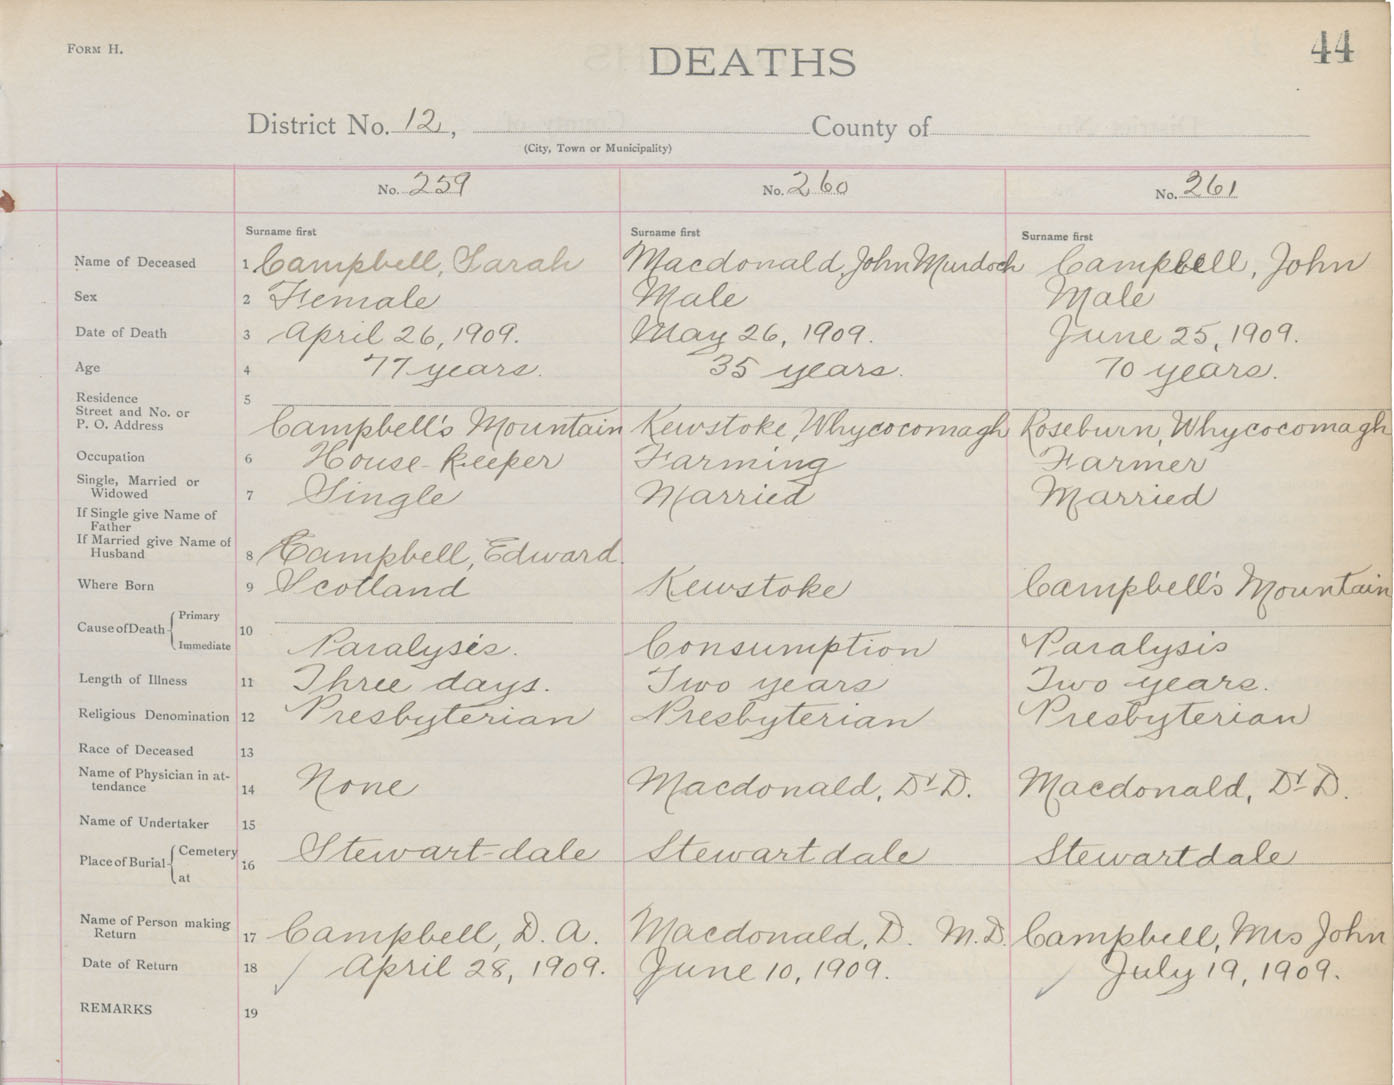 Form H.
DEATHS
44
District No. 12, County of
(City, Town or Municipality)
No. 259 No. 260 No. 261
Surname first Surname first Surname first
Name of Deceased 1 Campbell, Sarah Macdonald, John Murdoch Campbell, John
Sex 2 Female Male Male
Date of Death 3 April 26, 1909. May 26, 1909. June 25, 1909.
Age 4 77 years. 35 years. 70 years.
Residence 5
Street and No. or
P. O. Address Campbell's Mountain Kewstoke, Whycocomagh Roseburn, Whycocomagh
Occupation 6 House-keeper Farming Farmer
Single, Married or
Widowed 7 Single Married Married
If Single give Name of
Father
If Married give Name of
Husband 8 Campbell, Edward.
Where Born 9 Scotland Kewstoke Campbell's Mountain
Cause of Death Primary
10
Immediate Paralysis. Consumption Paralysis
Length of Illness 11 Three days. Two years Two years.
Religious Denomination 12 Presbyterian Presbyterian Presbyterian
Race of Deceased 13
Name of Physician in at-
tendance 14 None Macdonald, Dr D. Macdonald, Dr D.
Name of Undertaker 15
Place of Burial Cemetery 16 Stewart-dale Stewartdale Stewartdale
at
Name of Person making
Return 17 Campbell, D. A. Macdonald, D. M.D. Campbell, Mrs John
Date of Return 18 April 28, 1909. June 10, 1909. July 19, 1909.
REMARKS 19